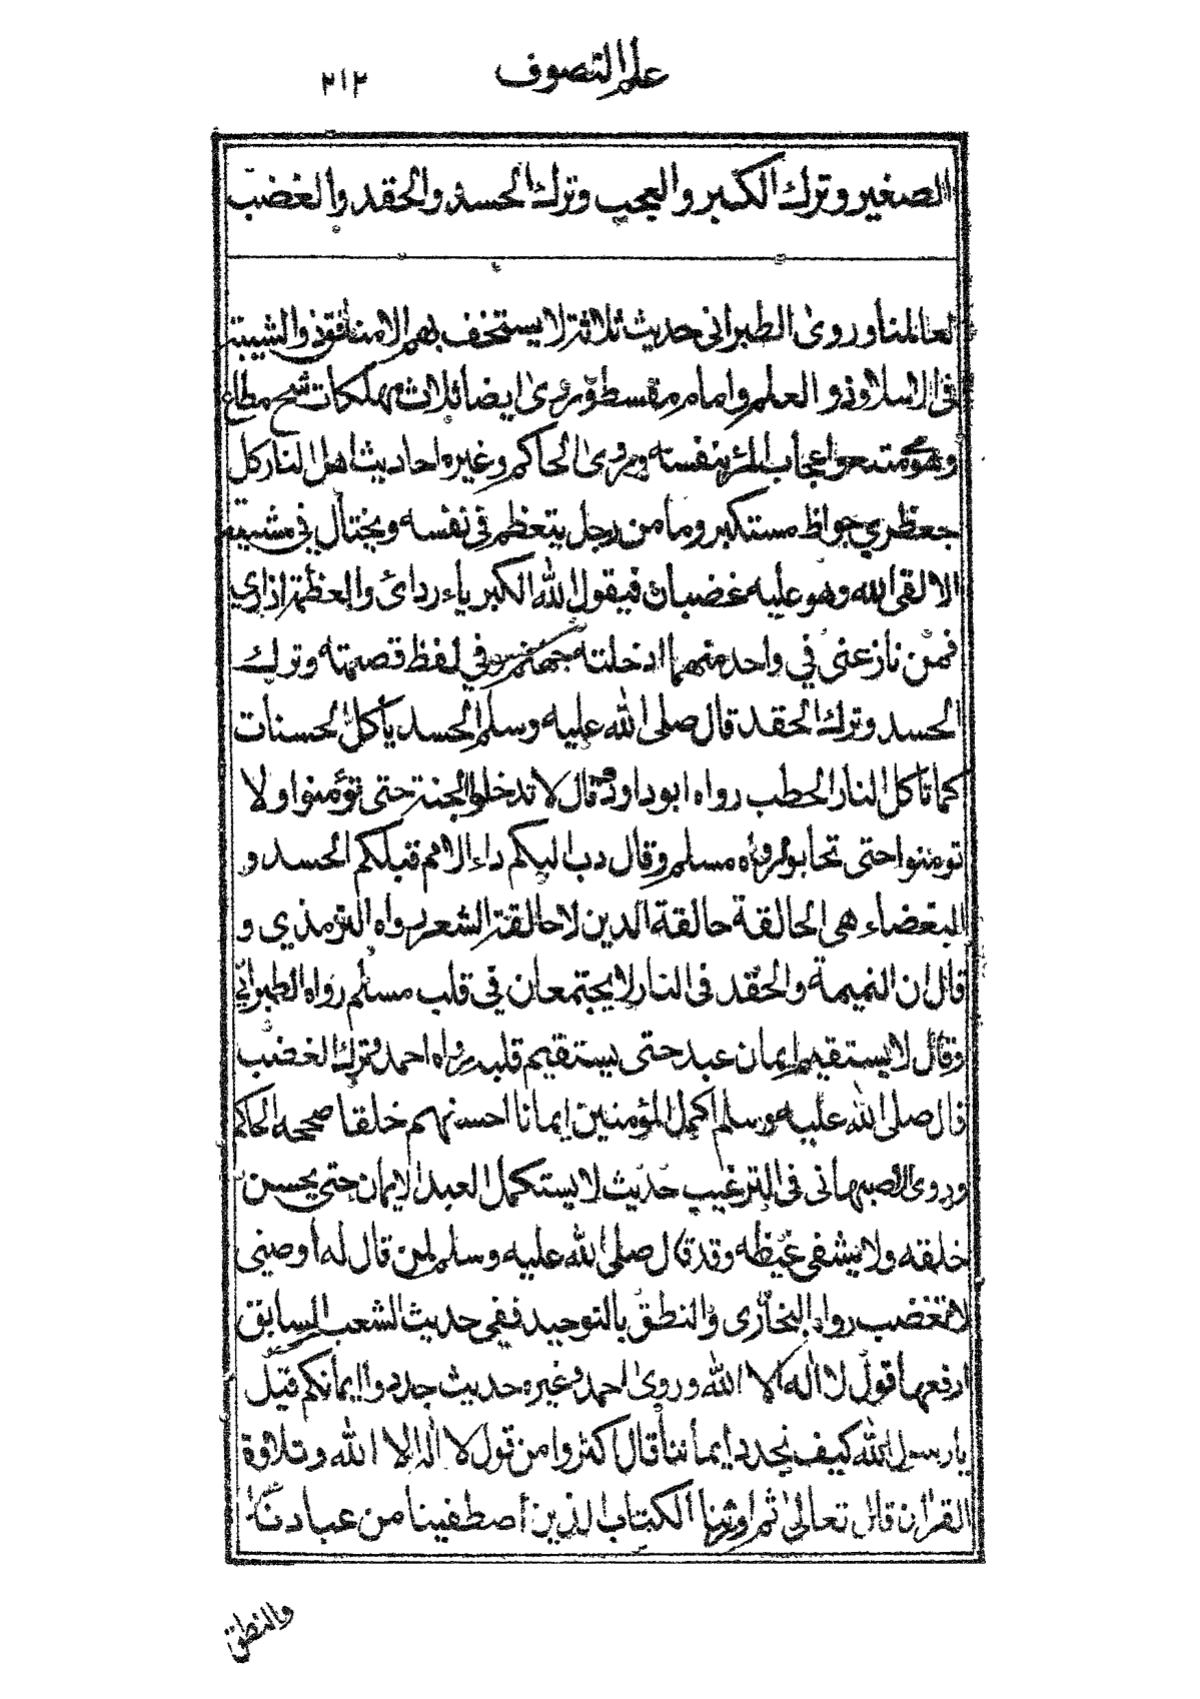 علم التصوف
٢١٢
الصغير وترك الكبر والعجب وترك الحسد والحقد والغضب
لعالمنا وروى الطبراني حديث ثلاثة لا يستخف بهم الا منافق ذو الشيبة
في الاسلام وذو العلم وامام مقسط وروى ايضا ثلاث مهلكات شح مطاع
وهوى متبع واعجاب المرء بنفسه وروى الحاكم وغيره احاديث اهل النار كل
جعظري جواظ مستكبر وما من رجل يتعظم في نفسه ويختال في مشيته
الا لقى الله وهو عليه غضبان فيقول الله الكبرياء ردائ والعظمة ازاري
فمن نازعنى في واحد منهما ادخلته جهنم وفي لفظ قصمته وترك
الحسد وترك الحقد قال صلى الله عليه وسلم الحسد يأكل الحسنات
كما تأكل النار الحطب رواه ابو داود وقال لا تدخلوا الجنة حتى تؤمنوا ولا
تومنوا حتى تحابوا رواه مسلم وقال دب اليكم داء الامم قبلكم الحسد و
البغضاء هي الحالقة حالقة الدين لا حالقة الشعر رواه الترمذي و
قال ان النميمة والحقد في النار لا يجتمعان في قلب مسلم رواه الطبراني
وقال لا يستقيم ايمان عبد حتى يستقيم قلبه رواه احمد وترك الغضب
قال صلى الله عليه وسلم اكمل المؤمنين ايمانا احسنهم خلقا صححه الحاكم
وروى الاصبهانى في الترغيب حديث لا يستكمل العبد الايمان حتى يحسن
خلقه ولا يشفى غيظه وقد قال صلى الله عليه وسلم لمن قال له أوصينى
لا تغضب رواه البخارى والنطق بالتوحيد ففي حديث الشعب السابق
ارفعها قول لا اله الا الله وروى احمد وغيره حديث جددوا ايمانكم قيل
يا رسول الله كيف نجدد ايماننا قال اكثروا من قول لا اله الا الله وتلاوة
القران قال تعالى ثم اورثنا الكتاب الذين أصطفينا من عبادنا
والنطق